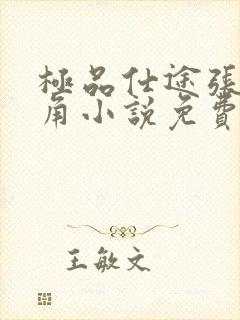 極品仕途張
角小說免費
王敏文